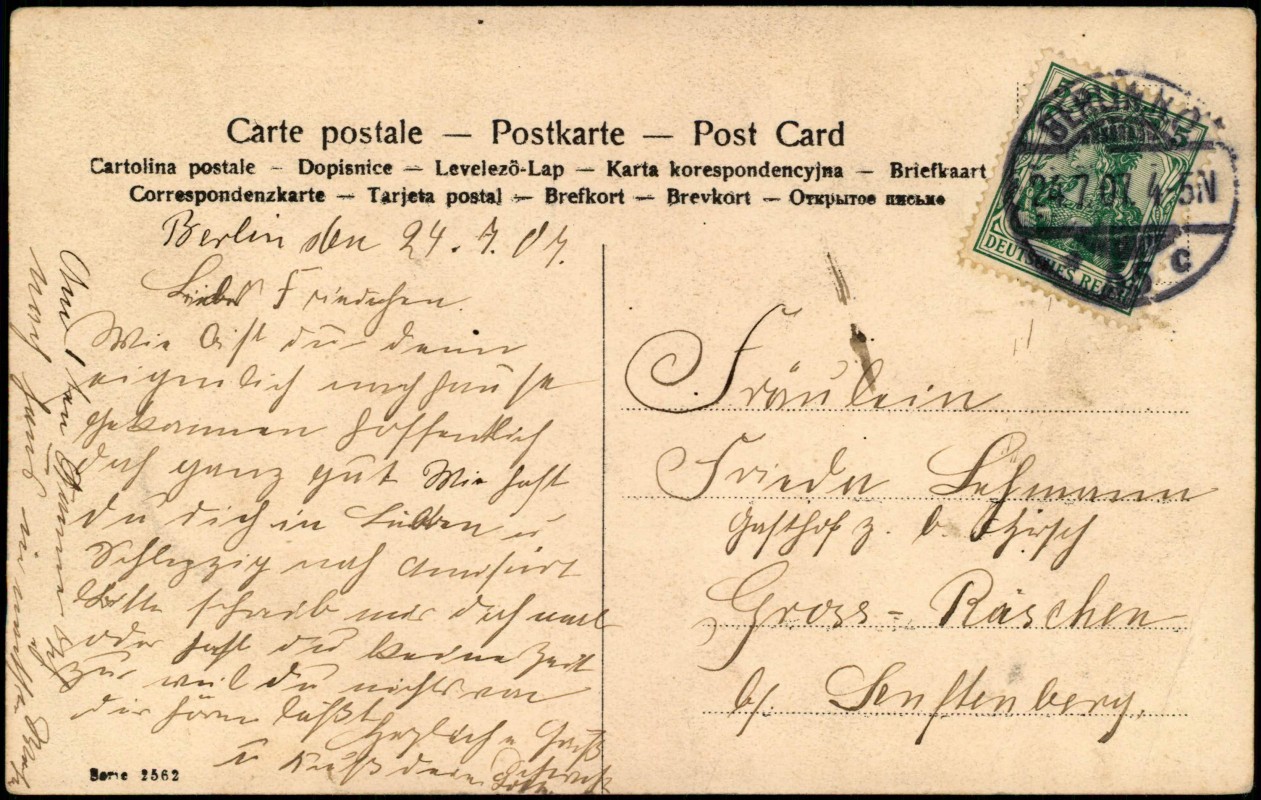 Carte postale — Postkarte — Post Card
Cartolina postale – Dopisnice – Levelező-Lap – Karta korespondencyjna – Briefkaart
Correspondenzkarte – Tarjeta postal – Brefkort – Brevkort – Открытое письмо
BERLIN N.
24.7.07. 4-5N
c
5 5
DEUTSCHES REICH
Berlin den 24.7.07.
Liebes Friedchen.
Wie bist du denn
eigendlich nachhause
gekommen hoffendlich
doch ganz gut Wie hast
du dich in Lübben u
nach
Bitte schreib mir doch mal
oder hast du keine Zeit
zur weil du nichts von
dir hören laßt
Herzlich u Gruß
u Kuß deine
noch in
Fräulein
Frieda Lehmann
Gasthof z. b. Hirsch
Gross-Räschen
b/ Senftenberg.
Serie 2562